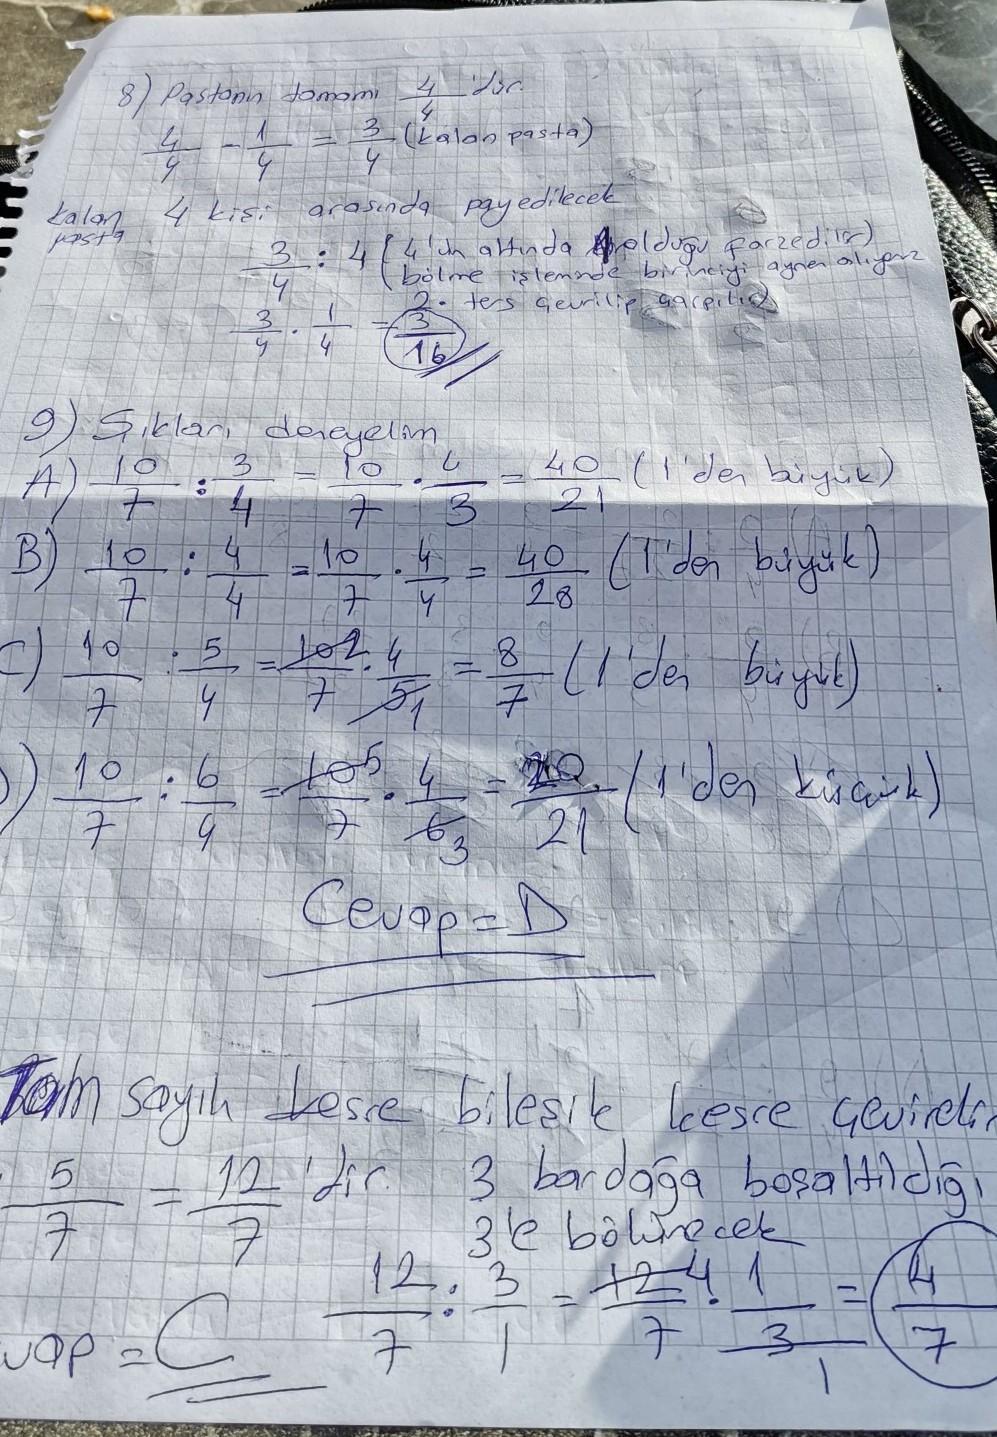 8) Pastanın tamamı 4/4 'dür.
4/4 - 1/4 = 3/4 (kalan pasta)
kalan pasta 4 kişi arasında payedilecek
3/4 : 4 (4'ün altında 1 olduğu farzedilir)
(bölme işleminde birinciyi aynen alıyoruz
2. ters çevrilip çarpılır)
3/4 . 1/4 = 3/16
9) Şıkları deneyelim
A) 10/7 : 3/4 = 10/7 . 4/3 = 40/21 (1'den büyük)
B) 10/7 : 4/4 = 10/7 . 4/4 = 40/28 (1'den büyük)
C) 10/7 : 5/4 = 10 2/7 . 4/5 1 = 8/7 (1'den büyük)
) 10/7 : 6/4 = 10 5/7 . 4/6 3 = 20/21 (1'den küçük)
Cevap = D
Tam sayılı kesre bileşik kesre çevirelim
5/7 = 12/7 'dir. 3 bardağa boşaltıldığı
3'e bölünecek
12/7 : 3/1 = 12 4/7 . 1/3 1 = 4/7
vap = C